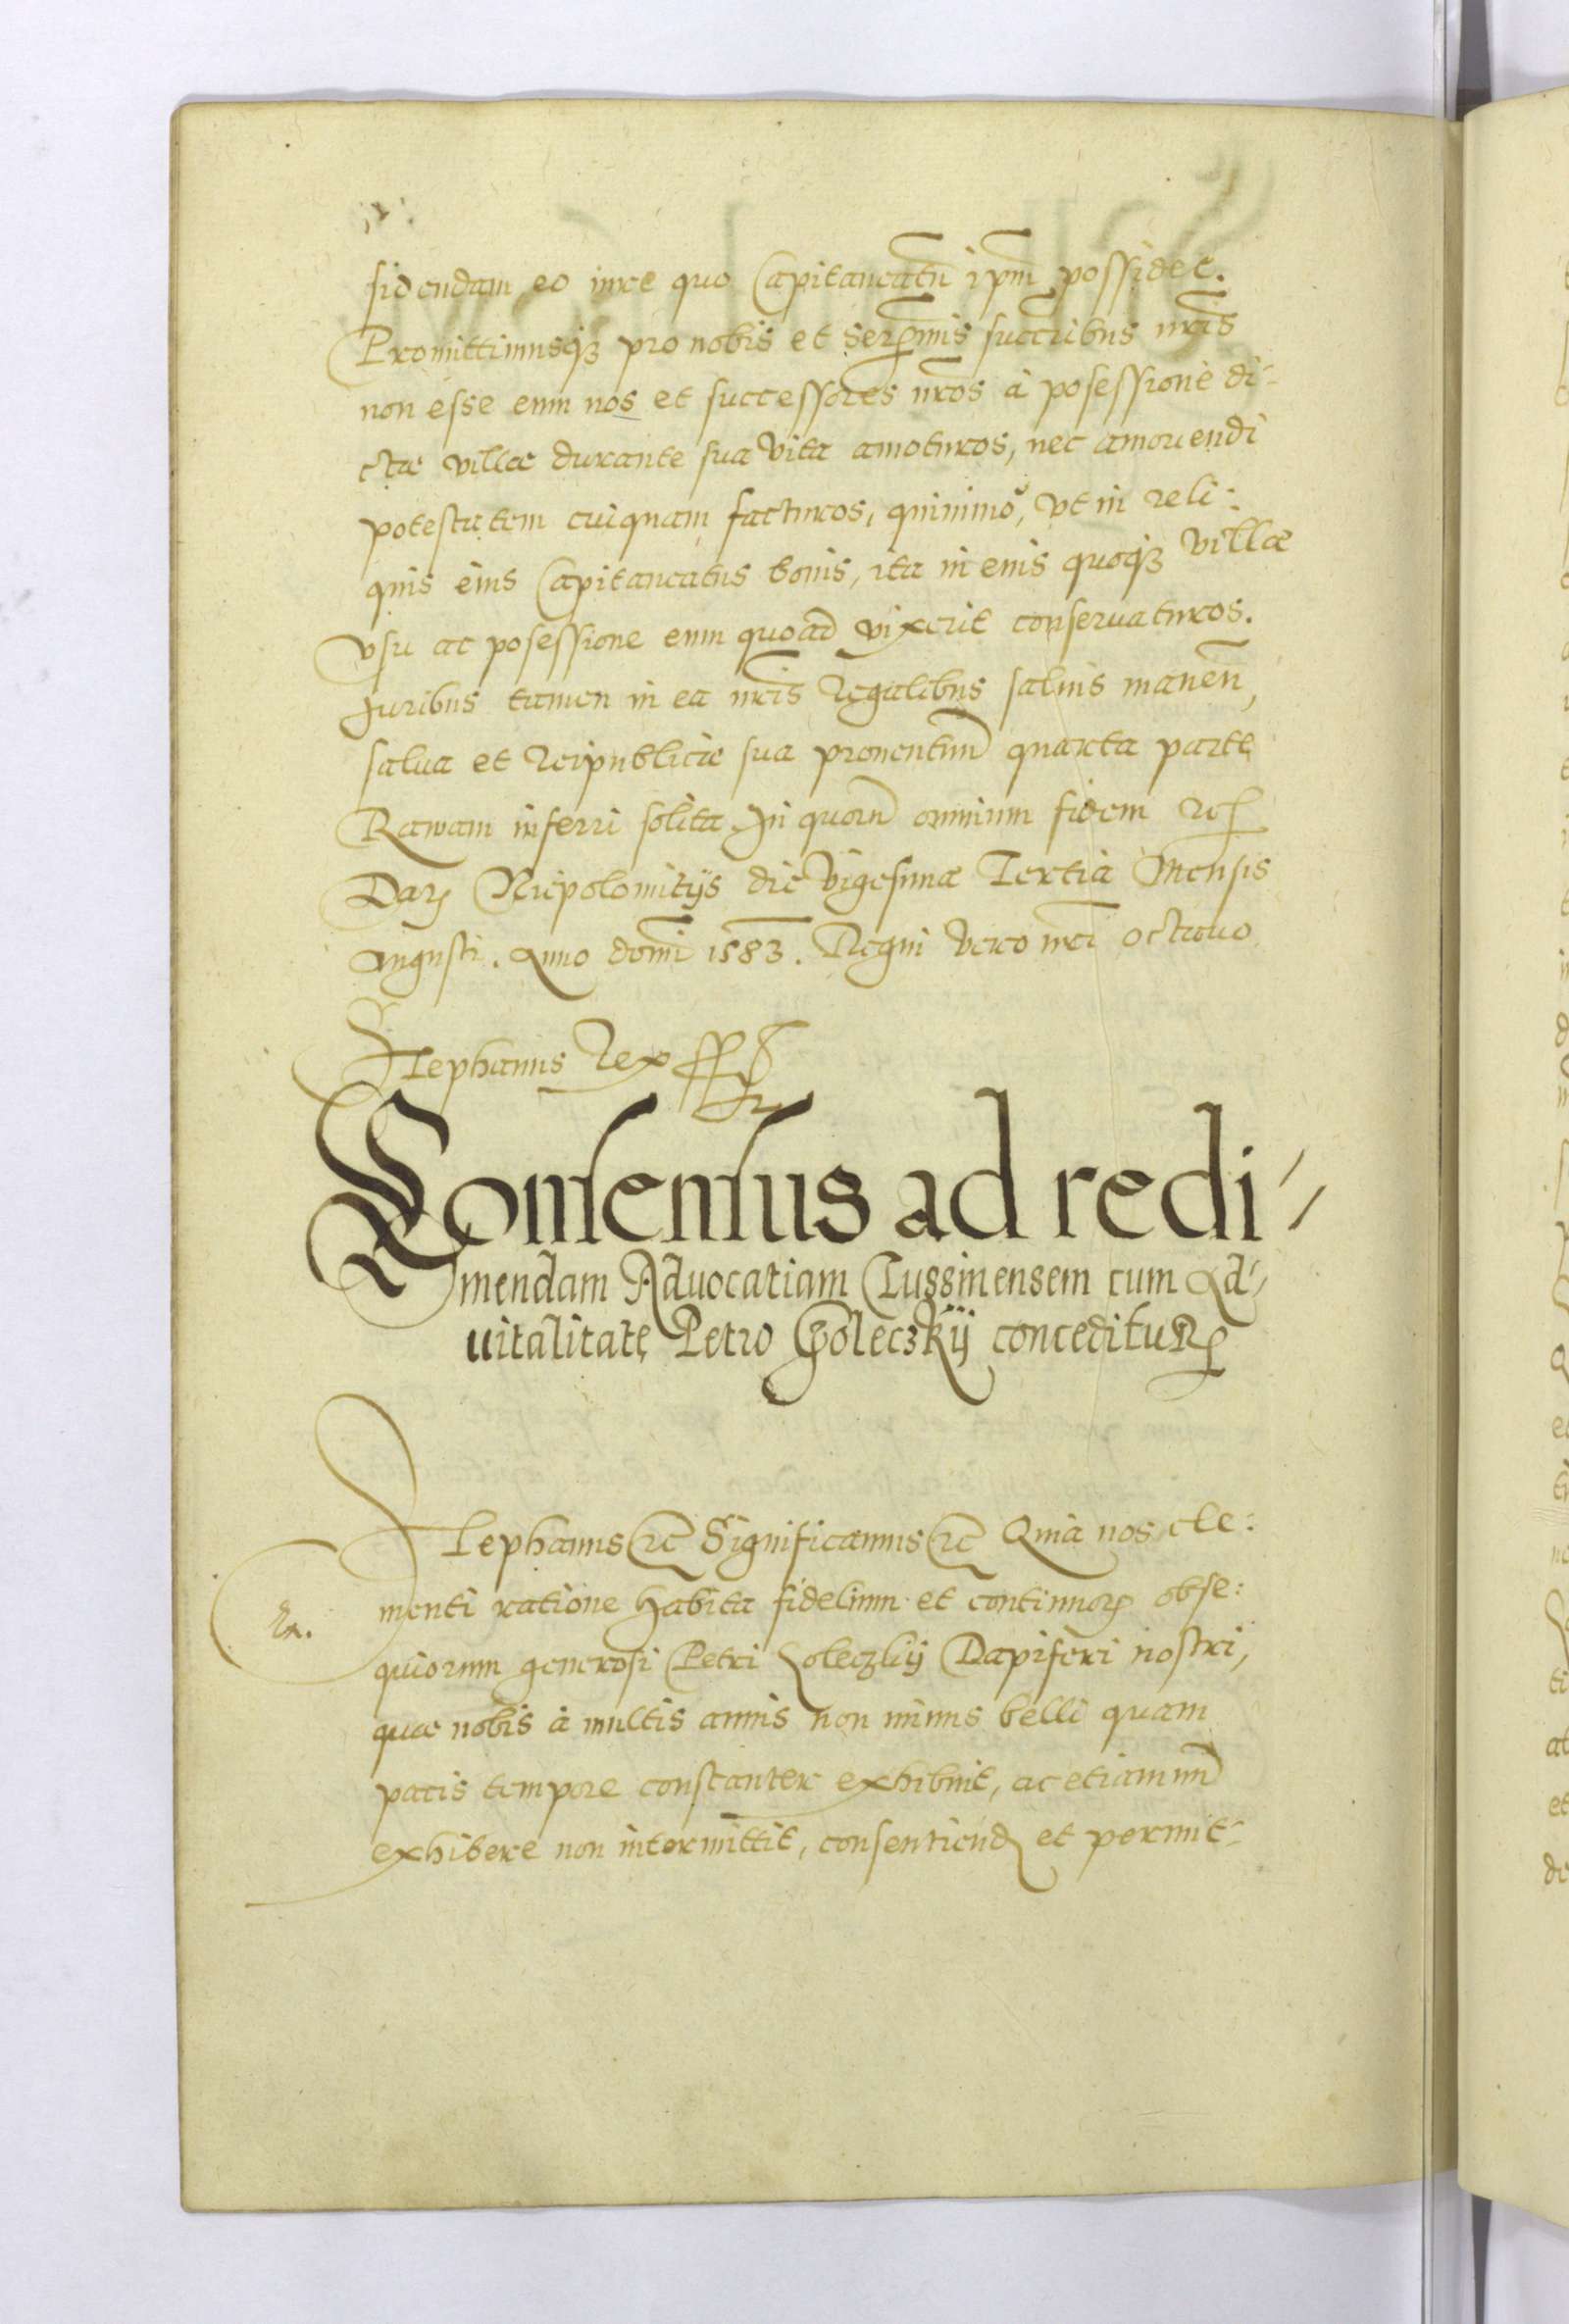 sidendam eo iure quo Capitaneatū ipm̄ possidet.
Promittimusq̃ pro nobis et Serm̄mis succ̄ribus nr̄is
non esse eum nos et successores nr̄os à posessione di-
ctæ villæ durante sua vita amoturos, nec amouendi
potestatem cuiquam facturos, quinimo, vt in reli:
quis eius Capitaneatus bonis, ita in eius quoq̃ villæ
vsu ac posessione eum quoad vixerit conseruaturos.
Juribus tamen in ea nr̄is Regalibus saluis maneñ,
salua et Reipublicæ sua prouentuum quarta parte
Rawam inferri solita. In quorū omnium fidem
Dat̃ Niepolomitijs die Vigesima Tertia Mensis
Augusti. Anno domī 1583. Regni vero nr̄i octauo
Stephanus Rex
Consensus ad redi-
mendam Aduocatiam Tussinensem cum Ad-
uitalitate Petro Goleczkÿ conceditur
Stephanus ec̄ Significamus ec̄ Quia nos cle:
menti ratione habita fidelium et continuor̃ obse:
quiorum generosi Petri Goleczkij Dapiferi nostri,
quæ nobis à multis annis non minus belli quam
pacis tempore constanter exhibuit, ac etiamnū
exhibere non intermittit, consentiend̃ et permit-